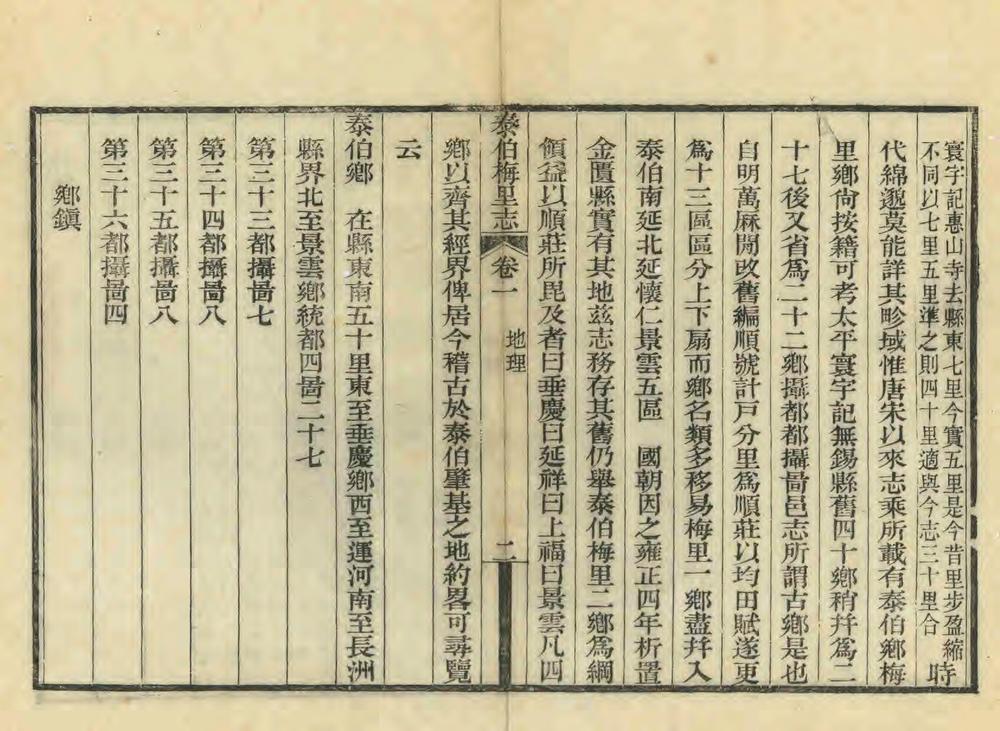 寰宇記惠山寺去縣東七里今實五里是今昔里步盈縮
不同以七里五里準之則四十里適與今志三十里合
時
代綿邈莫能詳其畛域惟唐宋以來志乘所載有泰伯鄉梅
里鄉尙按籍可考太平寰宇記無錫縣舊四十鄉稍幷爲二
十七後又省爲二十二鄉攝都都攝啚邑志所謂古鄉是也
自明萬厤閒改舊編順號計戸分里爲順莊以均田賦遂更
爲十三區區分上下扇而鄉名類多移易梅里一鄉盡幷入
泰伯南延北延懷仁景雲五區 國朝因之雍正四年析置
金匱縣實有其地茲志務存其舊仍舉泰伯梅里二鄉爲綱
領益以順莊所毘及者曰垂慶曰延祥曰上福曰景雲凡四
泰伯梅里志 卷一 地理 二
鄉以齊其經界俾居今稽古於泰伯肇基之地約畧可尋覽
云
泰伯鄉 在縣東南五十里東至垂慶鄉西至運河南至長洲
縣界北至景雲鄉統都四啚二十七
第三十三都攝啚七
第三十四都攝啚八
第三十五都攝啚八
第三十六都攝啚四
鄉鎮